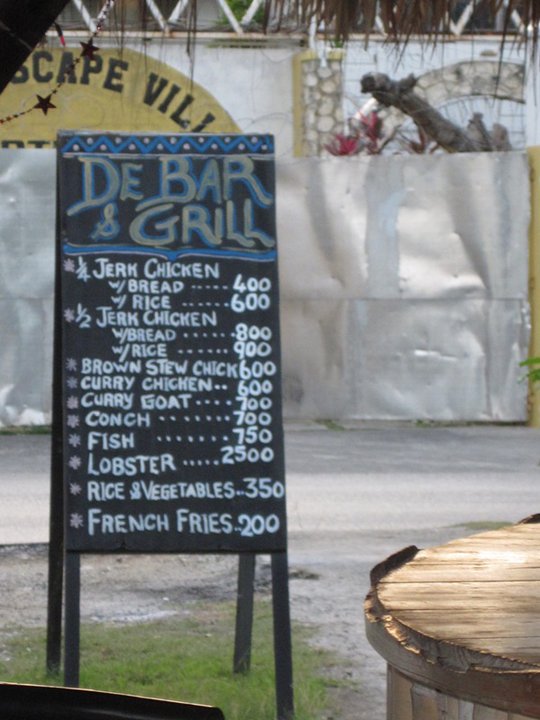 SCAPE VILL
DE BAR
& GRILL
* 1/4 JERK CHICKEN
W/ BREAD ..... 400
W/ RICE ...... 600
* 1/2 JERK CHICKEN
W/ BREAD ...... 800
W/ RICE ....... 900
* BROWN STEW CHICK 600
* CURRY CHICKEN.. 600
* CURRY GOAT .... 700
* CONCH ........ 700
* FISH ....... 750
* LOBSTER ..... 2500
* RICE & VEGETABLES.. 350
* FRENCH FRIES.. 200